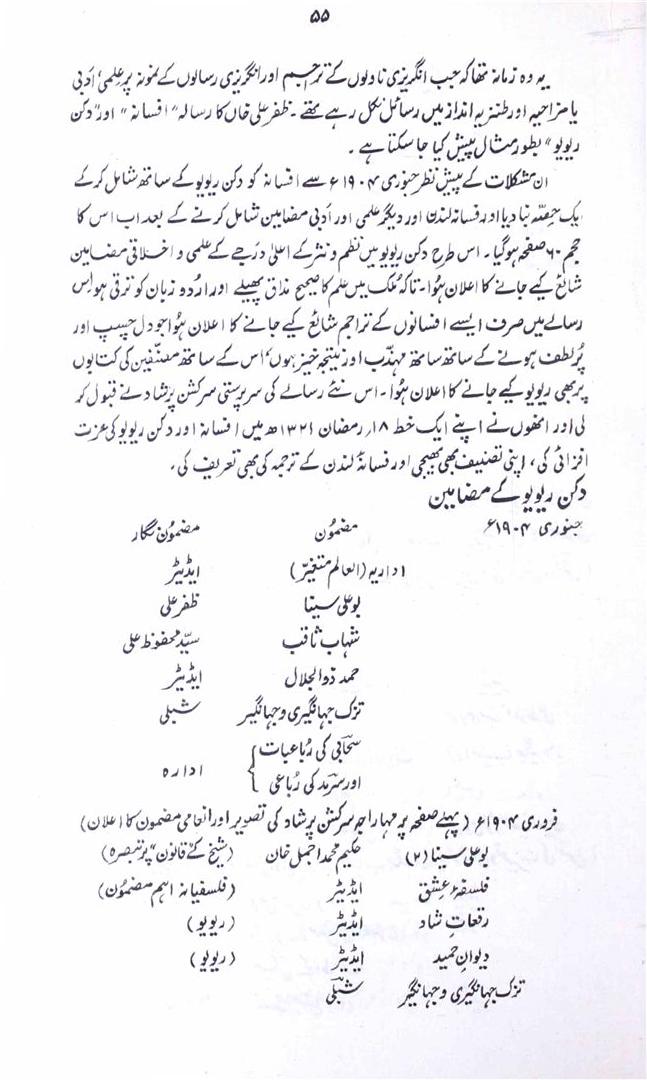 ۵۵
یہ وہ زمانہ تھا کہ جب انگریزی ناولوں کے تراجم اور انگریزی رسالوں کے نمونہ پر علمی، ادبی
یا مزاحیہ اور طنزیہ انداز میں رسائل نکل رہے تھے۔ ظفر علی خاں کا رسالہ "افسانہ" اور "دکن
ریویو" بطور مثال پیش کیا جا سکتا ہے۔
ان مشکلات کے پیش نظر جنوری ۱۹۰۴ء سے افسانہ کو دکن ریویو کے ساتھ شامل کر کے
یک حصّہ بنا دیا اور فسانۂ لندن اور دیگر علمی اور ادبی مضامین شامل کرنے کے بعد اب اس کا
حجم ۶۰ صفحہ ہو گیا۔ اس طرح دکن ریویو میں نظم و نثر کے اعلیٰ درجے کے علمی و اخلاقی مضامین
شائع کیے جانے کا اعلان ہُوا۔ تاکہ مُلک میں علم کا صحیح مذاق پھیلے اور اردو زبان کو ترقی ہو اس
رسالے میں صرف ایسے افسانوں کے تراجم شائع کیے جانے کا اعلان ہُوا جو دل چسپ اور
پُر لطف ہونے کے ساتھ ساتھ مہذّب اور نتیجہ خیز ہوں، اس کے ساتھ مصنّفین کی کتابوں
پر بھی ریویو کیے جانے کا اعلان ہُوا۔ اس نئے رسالے کی سرپرستی سر کشن پرشاد نے قبول کر
لی اور انھوں نے اپنے ایک خط ۱۸؍ رمضان ۱۳۲۱ھ میں افسانہ اور دکن ریویو کی عزت
افزائی کی، اپنی تصنیف بھی بھیجی اور فسانۂ لندن کے ترجمہ کی بھی تعریف کی۔
دکن ریویو کے مضامین
جنوری ۱۹۰۴ء مضمون مضمُون نگار
اداریہ (العالم متغیّر) ایڈیٹر
بو علی سینا ظفر علی
شہاب ثاقب سیّد محفوظ علی
حمد ذوالجلال ایڈیٹر
تزک جہانگیری و جہانگیر شبلی
سحابی کی رُباعیات
اور سرمد کی رُباعی } ادارہ
فروری ۱۹۰۴ء (پہلے صفحہ پر مہاراجہ سر کشن پرشاد کی تصویر اور انعامی مضمون کا اعلان)
بو علی سینا (۲) حکیم محمد اجمل خان (شیخ کے "قانون" پر تبصرہ)
فلسفۂ عشق ایڈیٹر (فلسفیانہ اہم مضمُون)
رقعاتِ شاد ایڈیٹر (ریویو)
دیوانِ حمید ایڈیٹر (ریویو)
تزک جہانگیری و جہانگیر شبلی